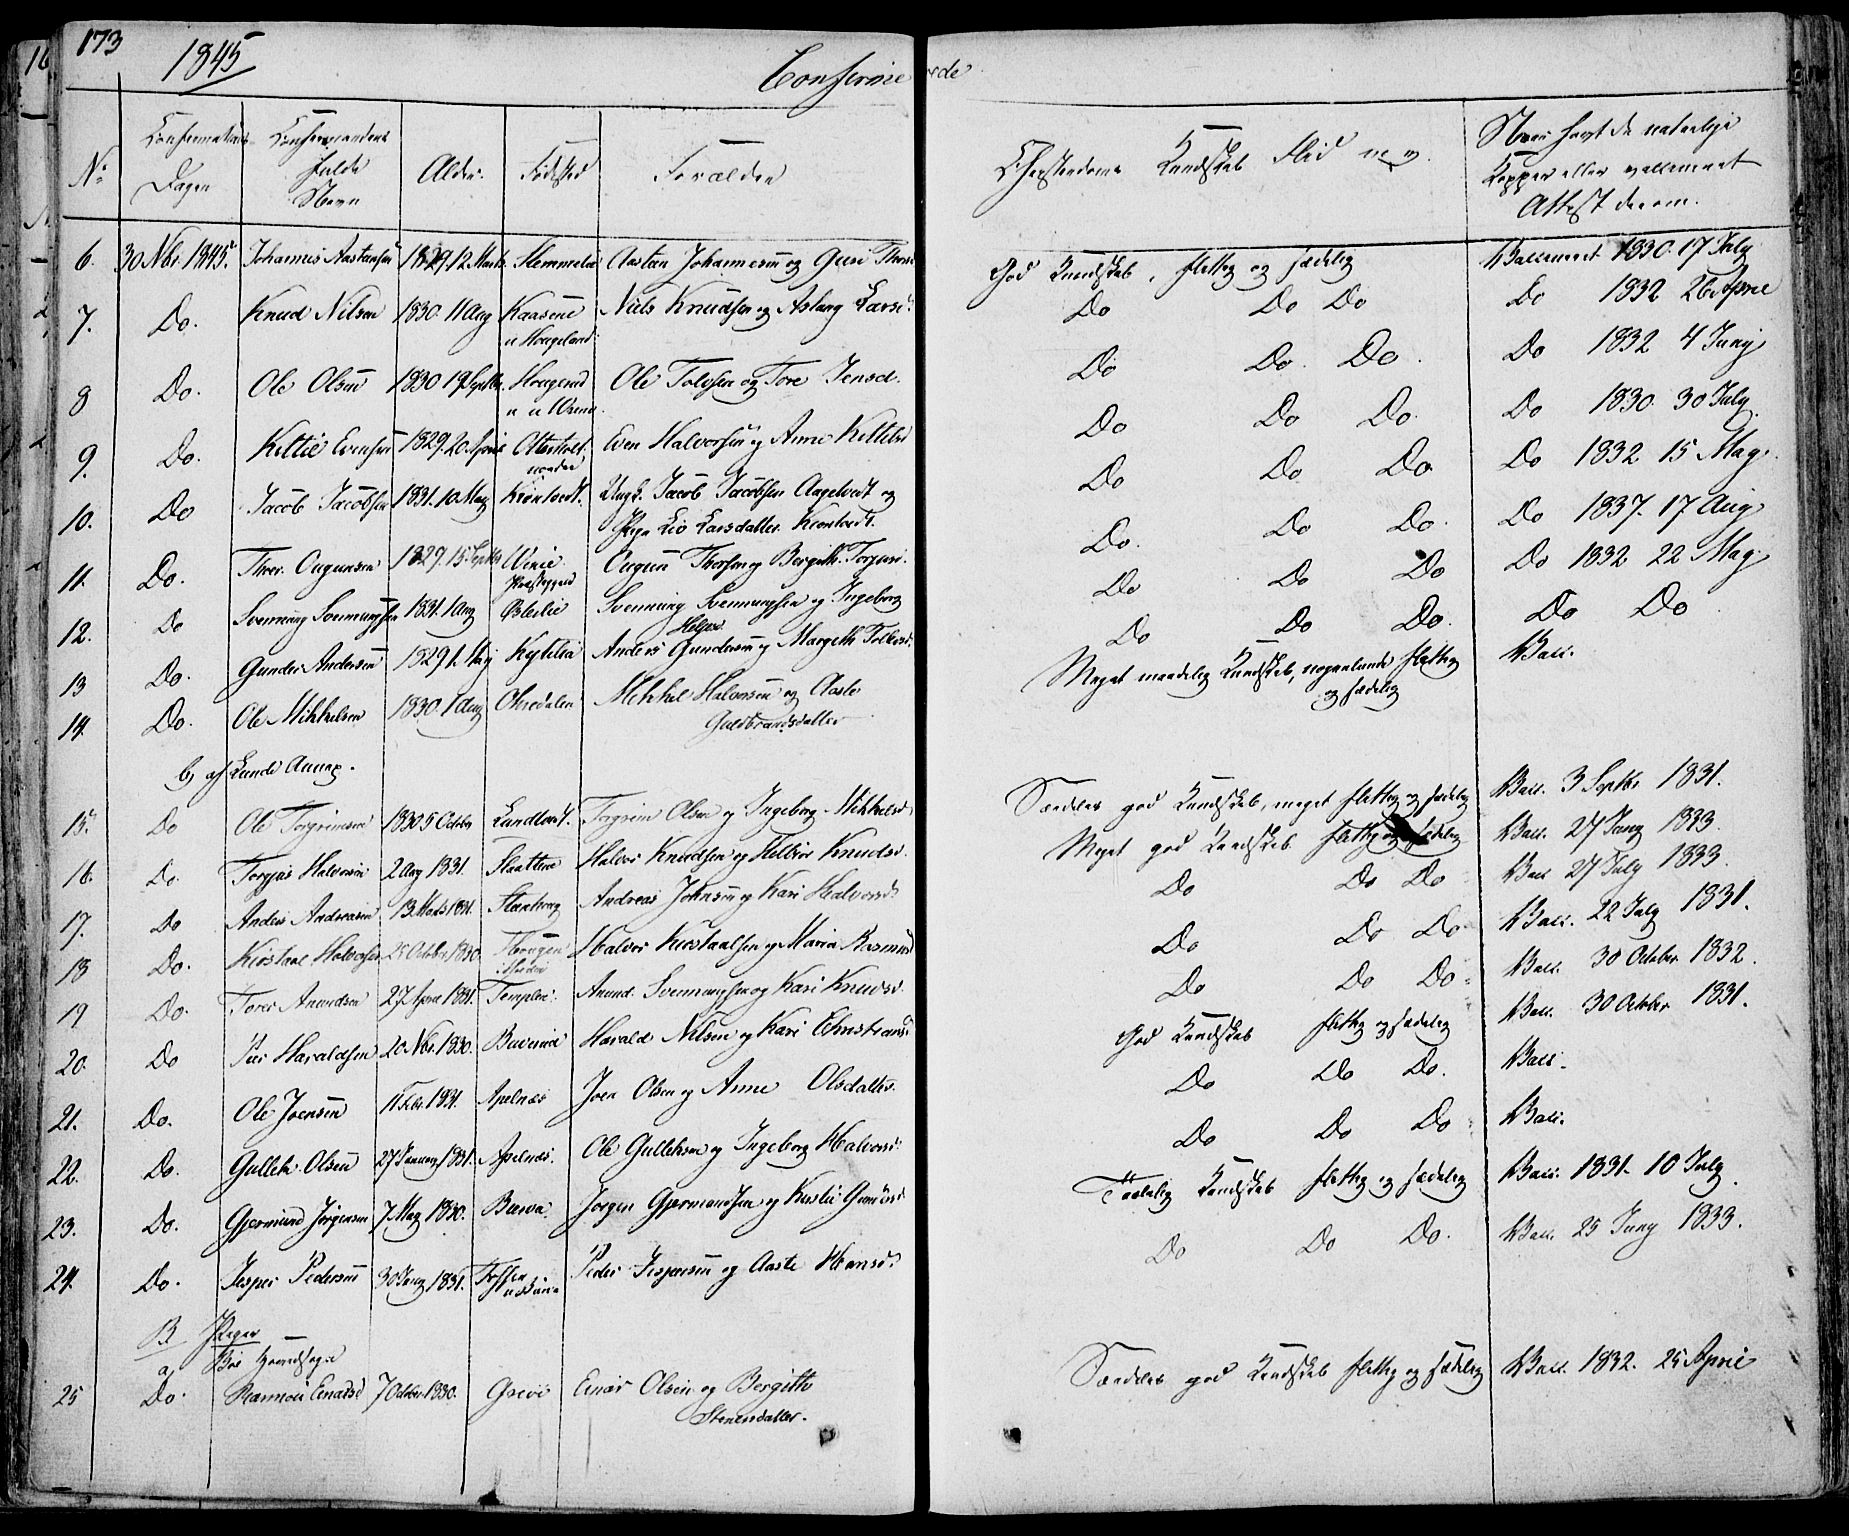 173
1845
Confirmerede
No
Confirmations Dagen
Confirmandens fulde Navn
Alder.
Fødested
Forældre
Christendoms Kundskab Flid m. v.
Naar havt de naturlige Kopper eller vaccineret Attest derom.
6. 30 Nbr. 1845. Johannes Aastansen 1829 12 Marts Aastan Johannesen og Guri
God Kundskab, flittig og sædelig Vaccineret 1830 17 July
7. Do. Knud Nilsen 1830. 11 Aug Kaasene u Hougeland Niels Knudsen og Aslaug Larsd:
Do Do Do Do 1832 26 April
8 Do. Ole Olsen 1830 19 Septbr. Ole Tolvsen og Tore Jensd.
Do Do. Do. Do 1832 4 Juny
9. Do. Kittil Evensen 1829. 20. April Otterholt nordre Even Halvorsen og Anne Kittilsd
Do Do Do. Do 1830. 30 July.
10. Do Jacob Jacobsen 1831. 10. May Krontvedt. Ungk. Jacob Jacobsen Aagetvedt og
Pige Liv Larsdatter Krontvedt.
Do Do Do Do 1832 15 May.
11. Do. Thor Ougunsen 1829. 15. Septbr Verie Præstegard Ougun Thorsen og Bergith Torgusd.
Do. Do Do. Do 1837. 17 Aug
12. Do Svenning Svenningsen 1831. 1 Aug Østerlie Svenning Svenningsen og Ingeborg
Do Do Do Do 1832 22 May
13 Do. Gunder Andersen 1829 1. May Anders Gundersen og Margith
Do Do Do. Do Do
14. Do. Ole Mikkelsen 1830. 1 Aug Ottredalen Mikkel Halvorsen og Aaste
Guldbrandsdatter
Meget maadelig Kundskab, nogenlunde flittig
og sædelig
Vacc.
b, af Lunde Annex.
15. Do Ole Torgrimsen 1830 5 October Lundtvedt. Torgrim Olsen og Ingeborg Mikkelsd.
Særdeles god Kundskab, meget flittig og sædelig Vacc. 3 Septbr 1831.
16. Do. Torgjus Halvorsen 2 Aug 1831. Slaatten Halvor Knudsen og Helvor Knudsd.
Meget god Kundskab flittig og sædelig Vacc. 27 Juny 1833.
17. Do Anders Andreasen 13. Marts 1831. Andreas Johnsen og Kari Halvorsd:
Do Do Do Vacc 27 July 1833.
18 Do. Kirstaal Halvorsen 25 October 1830. Halvor Kirstaalsen og Maria Rasmusd
Do Do Do Vacc. 22 July 1831.
19 Do. Tores Anundsen 27 April 1831. Templen. Anund Svennungsen og Kari Knudsd.
Do Do Do Vacc. 30 October 1832.
20. Do Per Haraldsen 20. Nbr. 1830. Harald Nilsen og Kari
God Kundskab flittig og sædelig Vacc. 30 October 1831.
21. Do. Ole Joensen 11 Febr. 1831. Apelnæs Joen Olsen og Anne Olsdatter.
Do Do Do. Vacc.
22. Do. Gullek Olsen 27 January 1831. Apelnæs. Ole Gulleksen og Ingeborg Halvorsd.
Do Do Do Vacc.
23. Do. Gjermund Jørgensen 7 May 1830. Jørgen Gjermundsen og Kirstie Gundersd
Taalelig Kundskab flittig og sædelig Vacc. 1831. 10 July
24. Do. Jesper Pedersen 30 Juny 1831. Peder Jespersen og Aaste Hansd:
Do Do Do. Vacc. 25 Juny 1833.
B Piger
a, Bøe Hovedsogn
25 Do. Ranneu Enarsd 7 October 1830. Grevi Enar Olsen og Bergitte
Stenersdatter.
Særdeles god Kundskab flittig og sædelig Vacc. 1832. 25 April